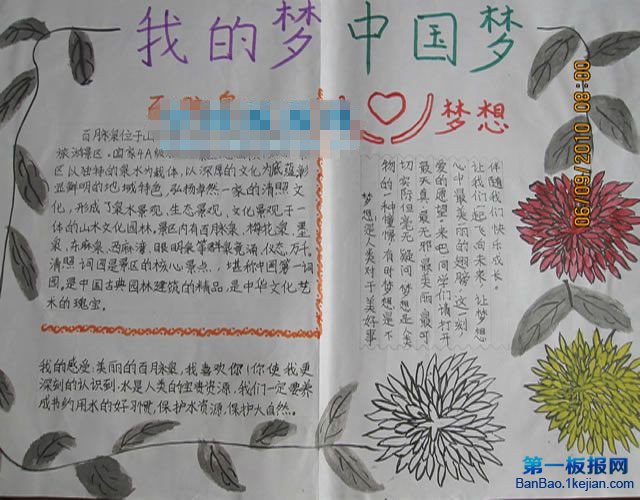 我的梦 中国梦
百脉泉
梦想
百脉泉位于山
旅游景区。国家4A级
区以独特的泉水为载体,以深厚的文化为底蕴,彰
显鲜明的地域特色,弘扬卓然一家的清照文
化,形成了泉水景观、生态景观、文化景观于一
体的山水文化园林。景区内有百脉泉、梅花泉、墨
泉、东麻泉、西麻湾、眼明泉等群泉竞涌,仪态万千。
清照词园是景区的核心景点,堪称中国第一词
园,是中国古典园林建筑的精品,是中华文化艺
术的瑰宝。
我的感受:美丽的百月脉泉,我喜欢你!你使我更
深刻的认识到:水是人类的宝贵资源,我们一定要养
成节约用水的好习惯,保护水资源,保护大自然。
梦想是人类对于美好事
物的一种憧憬,有时梦想是不
切实际但毫无疑问梦想是人类
最天真最无邪最美丽最可
爱的愿望。来吧同学们请打开
心中最美丽的翅膀,这一刻
让我们起飞向未来,让梦想
伴随我们快乐成长。
06/09/2010 08:00
第一板报网
BanBao.1kejian.com